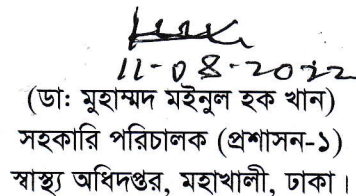 11-08-2022
(ডা: মুহাম্মদ মইনুল হক খান)
সহকারি পরিচালক (প্রশাসন-১)
স্বাস্থ্য অধিদপ্তর, মহাখালী, ঢাকা।